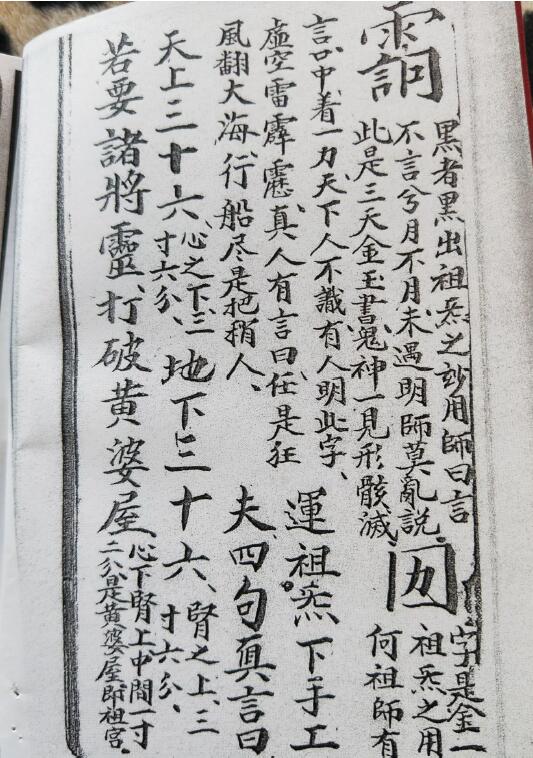 黑者黑出祖炁之妙用師曰言
不言兮月不月未遇明師莫亂說
此是三天金玉書鬼神一見形骸滅
字是金一
祖炁之用
何祖師有
言口中着一力天下人不識有人明此字、
虛空雷霹靂真人有言曰任是狂
風翻大海行船尽是把稍人、
運祖炁下手工
夫四句真言曰
天上三十六、心之下三寸六分、地下三十六、腎之上、三寸六分、
若要諸將靈、打破黃婆屋、心下腎上中間一寸二分是黃婆屋即祖宮。